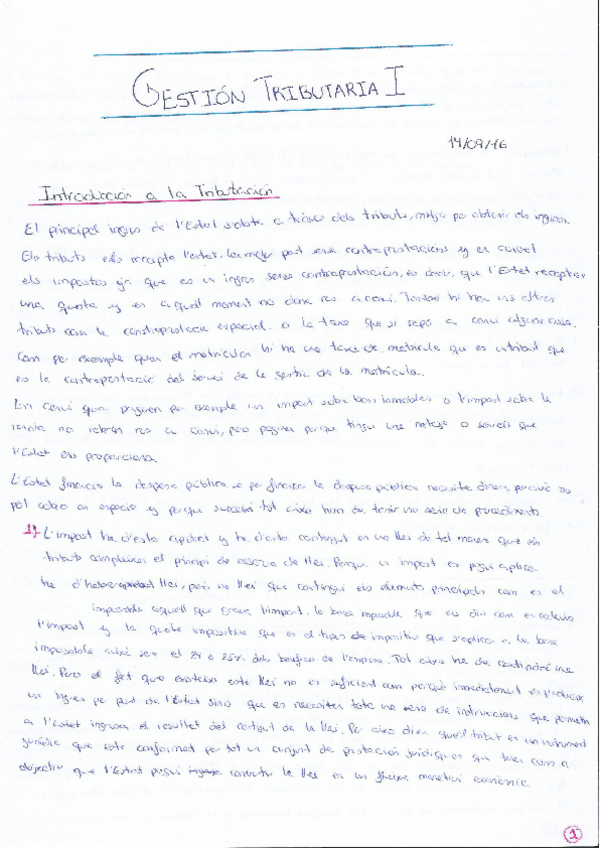 GESTIÓN TRIBUTARIA I
14/09/16
Introducción a la Tributación
El principal ingres de l'Estat s'obté a través dels tributs, mitjà per obtenir els ingressos.
Els tributs els recapta l'estat. La major part sense contraprestacions y en canvi
els impostos ja que es un ingres sense contraprestación, es decir, que l'Estat recapta
una quota y en aquell moment no dona res a canvi. També hi han uns altres
tributs com la contraprestació especial o la taxa que si reps a canvi alguna cosa.
Com per exemple quan et matricules hi ha una taxa de matricula que es un tribut que
es la contraprestació del servei de la gestió de la matrícula.
En canvi quan paguem per exemple un impost sobre bens inmobles o l'impost sobre la
renda no rebem res a canvi, però paguem perque tingui una neteja o serveis que
l'estat ens proporciona.
L'Estat financia la despesa pública, i per financiar la despesa pública necesita diners, perque no
pot cobrar en especie y perque succeixi tot això han de tenir una serie de procediments.
1) L'impost ha d'estar aprobat y ha d'estar contingut en una llei de tal manera que els
tributs compleixen el principi de reserva de llei. Perque un impost es pugui aplicar
ha d'haber llei, però una llei que contingui els elements principals com es el
imposable aquell que grava l'impost, la base imposable que ens diu com es calcula
l'impost y la quota impositiva que es el tipus impositiu que s'aplica a la base
imposable així sera el 24 o 25% dels beneficis de l'empresa. Tot això ha de contindre una
llei. Pero el fet que existeixi esta llei no es suficient com perquè inmediatament es produeixi
un ingres per part de l'Estat sino que es necesiten tota una serie de instruccions que permetin
a l'Estat ingresar el resultat del contingut de la llei. Per això diem que el tribut es un instrument
jurídic que esta conformat per tot un conjunt de prestacions jurídiques que tenen com a
objectiu que l'Estat pugui convertir la llei en un fluxe monetari económic.
1